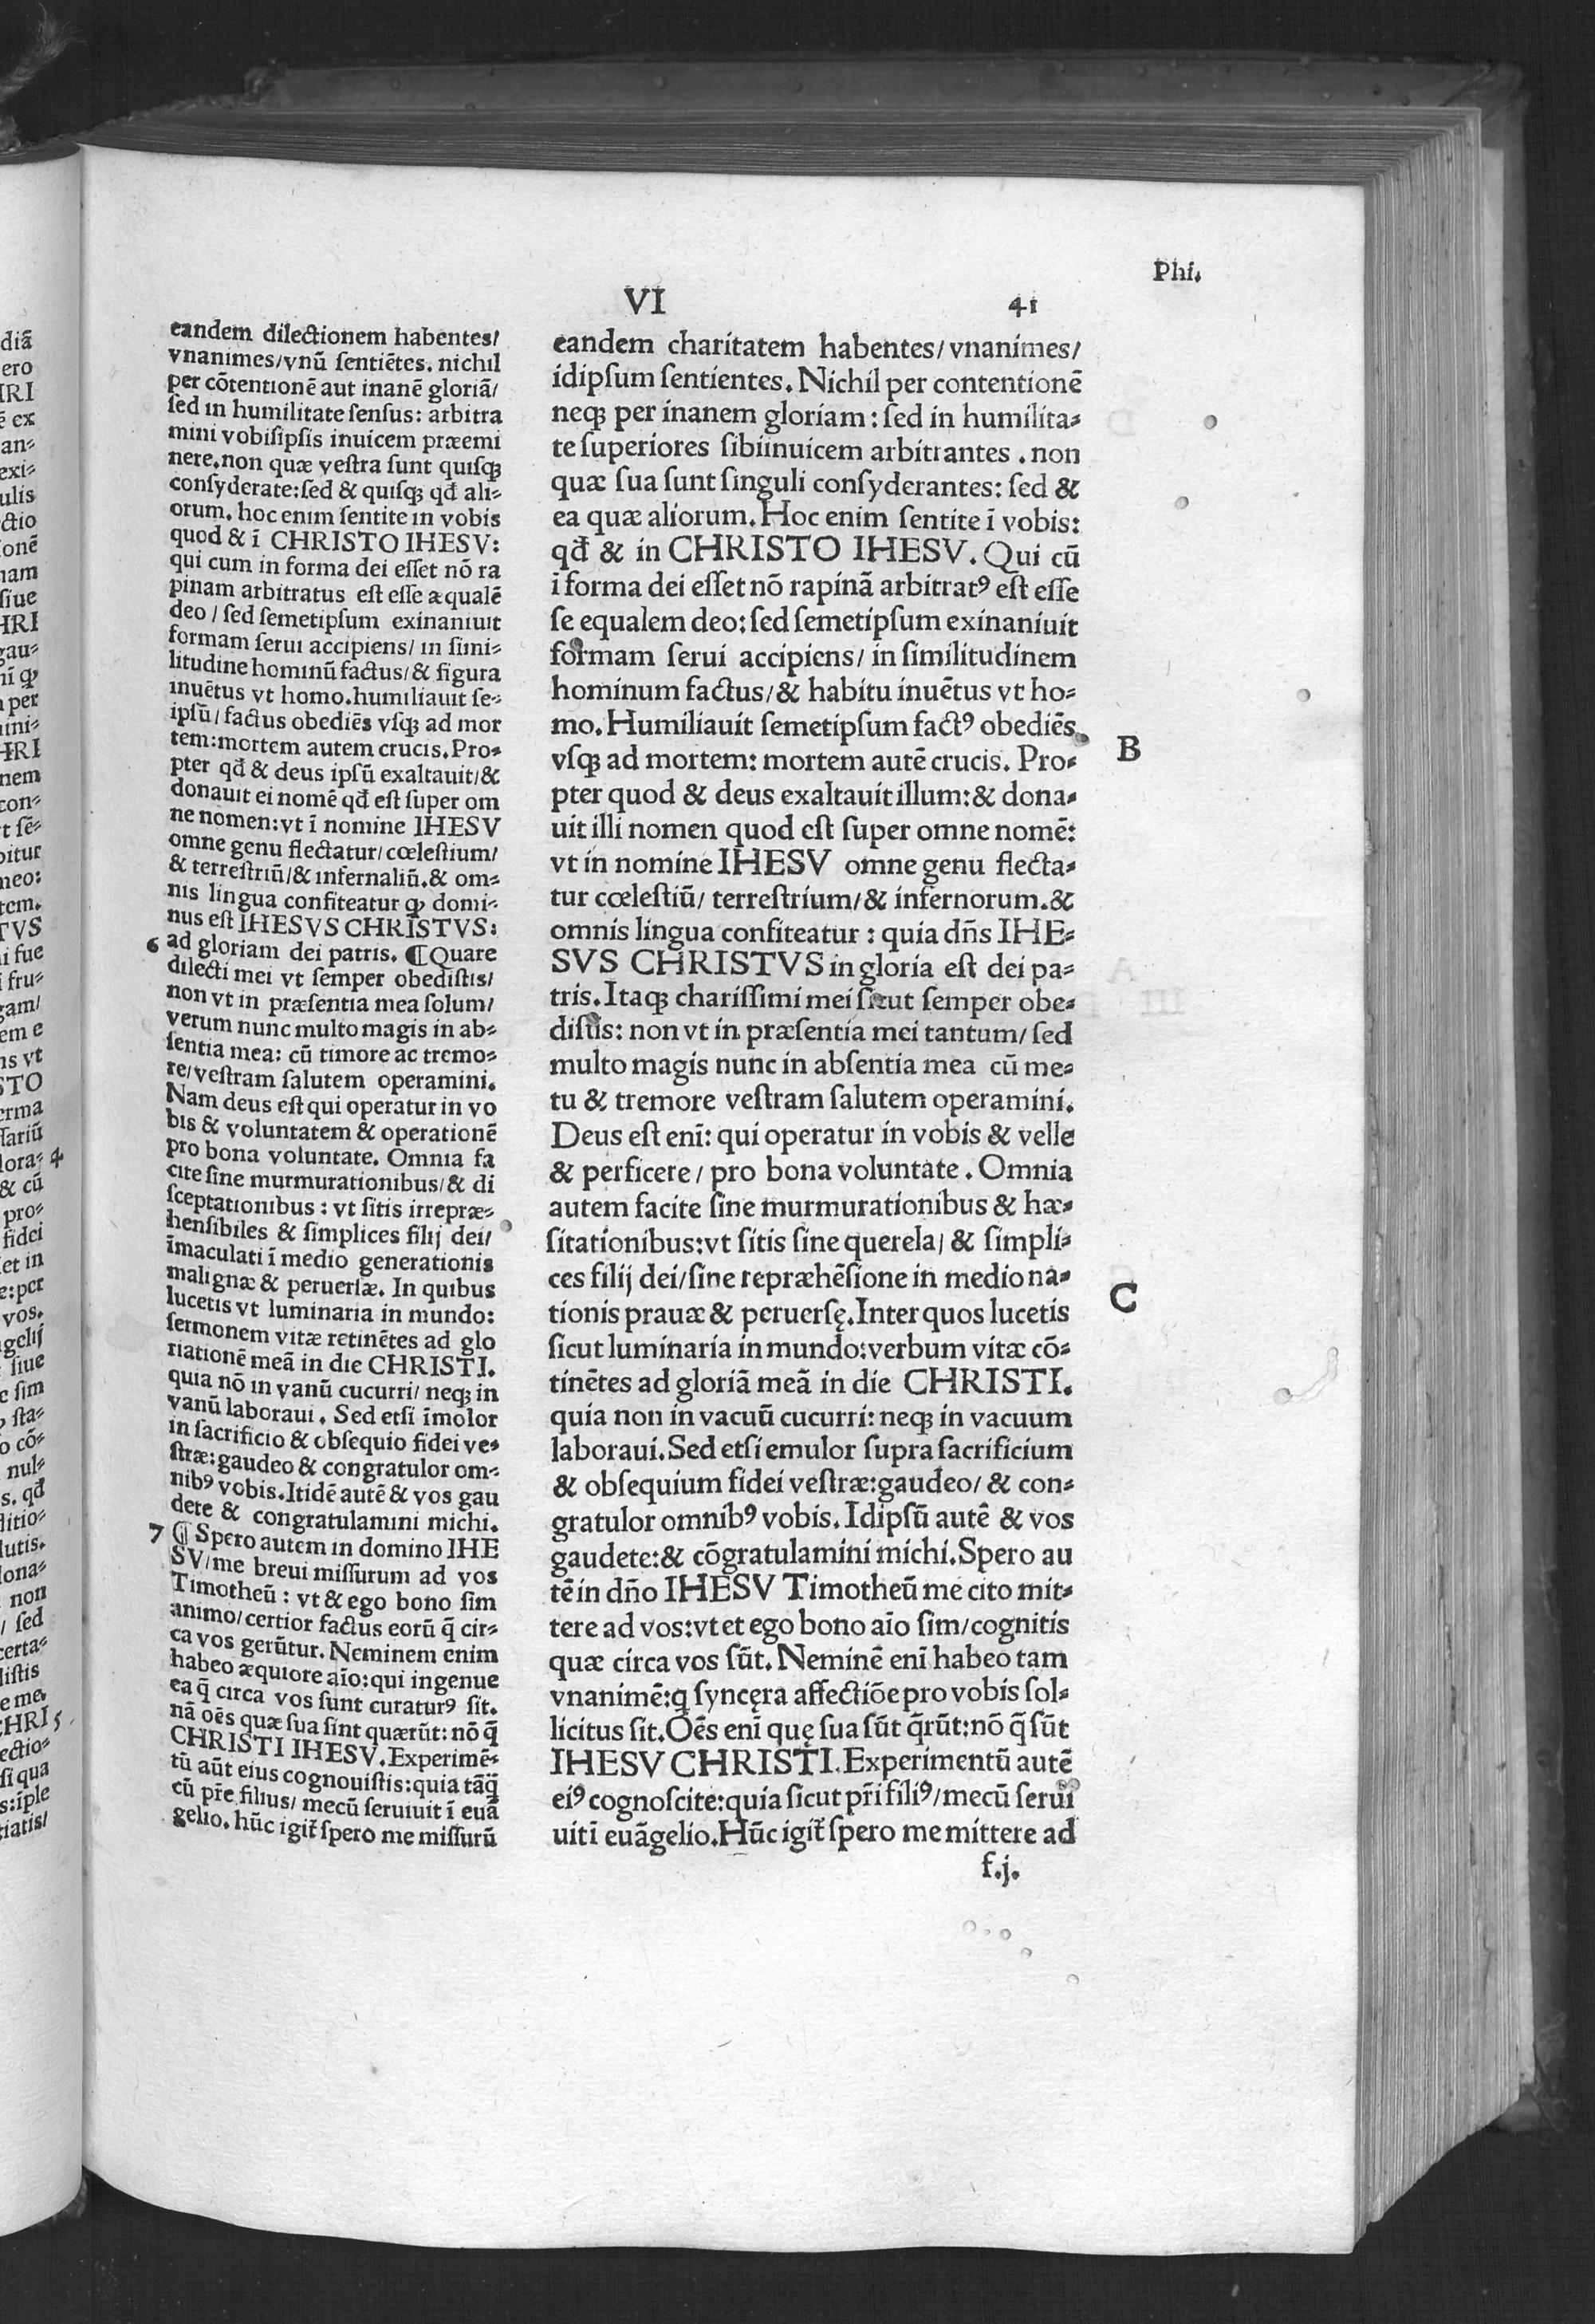 Phi.
VI
41
eandem dilectionem habentes/
vnanimes/vnū ſentiētes. nichil
per cōtentionē aut inanē gloriā/
ſed in humilitate ſenſus: arbitra
mini vobiſipſis inuicem præemi
nere. non quæ veſtra ſunt quiſqꝫ
conſyderate: ſed & quiſqꝫ qđ ali⸗
orum. hoc enim ſentite in vobis
quod & ī CHRISTO IHESV:
qui cum in forma dei eſſet nō ra
pinam arbitratus eſt eſſe æqualē
deo / ſed ſemetipſum exinaniuit
formam ſerui accipiens/ in ſimi⸗
litudine hominū factus/& figura
inuētus vt homo. humiliauit ſe⸗
ipſū/ factus obediēs vſqꝫ ad mor
tem: mortem autem crucis. Pro⸗
pter qđ & deus ipſū exaltauit/&
donauit ei nomē qđ eſt ſuper om
ne nomen: vt ī nomine IHESV
omne genu flectatur/ cœleſtium/
& terreſtriū/& infernaliū. & om⸗
nis lingua confiteatur ꝙ domi⸗
nus eſt IHESVS CHRISTVS:
6 ad gloriam dei patris. ¶ Quare
dilecti mei vt ſemper obediſtis/
non vt in præſentia mea ſolum/
verum nunc multo magis in ab⸗
ſentia mea: cū timore ac tremo⸗
re/veſtram ſalutem operamini.
Nam deus eſt qui operatur in vo
bis & voluntatem & operationē
pro bona voluntate. Omnia fa
cite ſine murmurationibus/& di
ſceptationibus: vt ſitis irrepræ⸗
henſibiles & ſimplices filij dei/
īmaculati ī medio generationis
malignæ & peruerſæ. In quibus
lucetis vt luminaria in mundo:
ſermonem vitæ retinētes ad glo
riationē meā in die CHRISTI.
quia nō in vanū cucurri/ neqꝫ in
vanū laboraui. Sed etſi īmolor
in ſacrificio & obſequio fidei ve⸗
ſtræ: gaudeo & congratulor om⸗
nibꝰ vobis. Itidē autē & vos gau
dete & congratulamini michi.
7 ¶ Spero autem in domino IHE
SV/me breui miſſurum ad vos
Timotheū: vt & ego bono ſim
animo/certior factus eorū q̄ cir⸗
ca vos gerūtur. Neminem enim
habeo æquiore aīo: qui ingenue
ea q̄ circa vos ſunt curaturꝰ ſit.
nā oēs quæ ſua ſint quærūt: nō q̄
CHRISTI IHESV. Experimē⸗
tū aūt eius cognouiſtis: quia tāq̄
cū pr̄e filius/ mecū ſeruiuit ī euā
gelio. hūc igit̄ ſpero me miſſurū
eandem charitatem habentes/ vnanimes/
idipſum ſentientes. Nichil per contentionē
neqꝫ per inanem gloriam: ſed in humilita⸗
te ſuperiores ſibiinuicem arbitrantes. non
quæ ſua ſunt ſinguli conſyderantes: ſed &
ea quæ aliorum. Hoc enim ſentite ī vobis:
qđ & in CHRISTO IHESV. Qui cū
ī forma dei eſſet nō rapinā arbitratꝰ eſt eſſe
ſe equalem deo: ſed ſemetipſum exinaniuit
formam ſerui accipiens/ in ſimilitudinem
hominum factus/& habitu inuētus vt ho⸗
mo. Humiliauit ſemetipſum factꝰ obediēs
B
vſqꝫ ad mortem: mortem autē crucis. Pro⸗
pter quod & deus exaltauit illum: & dona⸗
uit illi nomen quod eſt ſuper omne nomē:
vt in nomine IHESV omne genu flecta⸗
tur cœleſtiū/ terreſtrium/& infernorum. &
omnis lingua confiteatur: quia dn̄s IHE⸗
SVS CHRISTVS in gloria eſt dei pa⸗
tris. Itaqꝫ chariſſimi mei ſicut ſemper obe⸗
diſtis: non vt in præſentia mei tantum/ ſed
multo magis nunc in abſentia mea cū me⸗
tu & tremore veſtram ſalutem operamini.
Deus eſt enī: qui operatur in vobis & velle
& perficere/ pro bona voluntate. Omnia
autem facite ſine murmurationibus & hæ⸗
ſitationibus: vt ſitis ſine querela/ & ſimpli⸗
ces filij dei/ſine repræhēſione in medio na⸗
C
tionis prauæ & peruerſę. Inter quos lucetis
ſicut luminaria in mundo: verbum vitæ cō⸗
tinētes ad gloriā meā in die CHRISTI.
quia non in vacuū cucurri: neqꝫ in vacuum
laboraui. Sed etſi emulor ſupra ſacrificium
& obſequium fidei veſtræ: gaudeo/ & con⸗
gratulor omnibꝰ vobis. Idipſū autē & vos
gaudete: & cōgratulamini michi. Spero au
tē in dn̄o IHESV Timotheū me cito mit⸗
tere ad vos: vt et ego bono aīo ſim/cognitis
quæ circa vos ſūt. Neminē enī habeo tam
vnanimē: q ſyncęra affectiōe pro vobis ſol⸗
licitus ſit. Oēs enī quę ſua ſūt q̄rūt: nō q̄ ſūt
IHESV CHRISTI. Experimentū autē
eiꝰ cognoſcite: quia ſicut pr̄i filiꝰ/mecū ſerui
uit ī euāgelio. Hūc igit̄ ſpero me mittere ad
f.j.